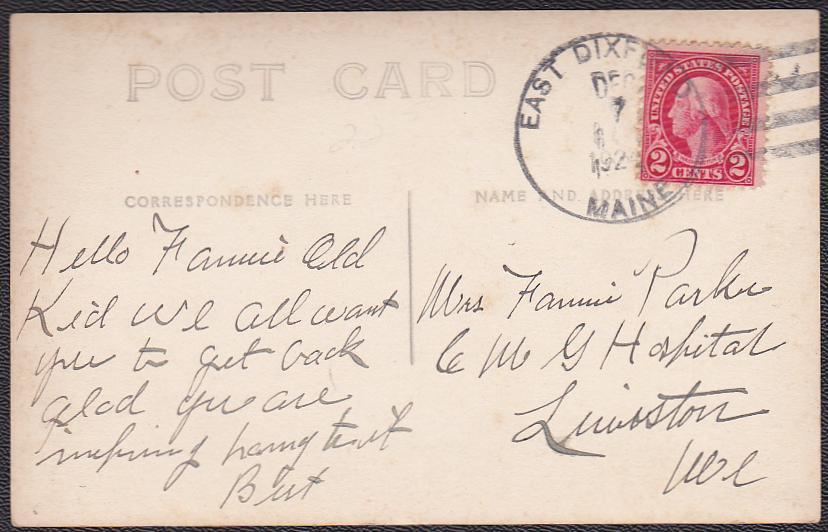 POST CARD
EAST DIXF
DEC
7
192
MAINE
UNITED STATES POSTAGE
2 CENTS 2
CORRESPONDENCE HERE
NAME AND ADDRESS HERE
Hello Fannie Old
Kid we all want
you to get back
glad you are
hang to it
Bert
Mrs Fannie Parker
C M G Hospital
Lewiston
Me